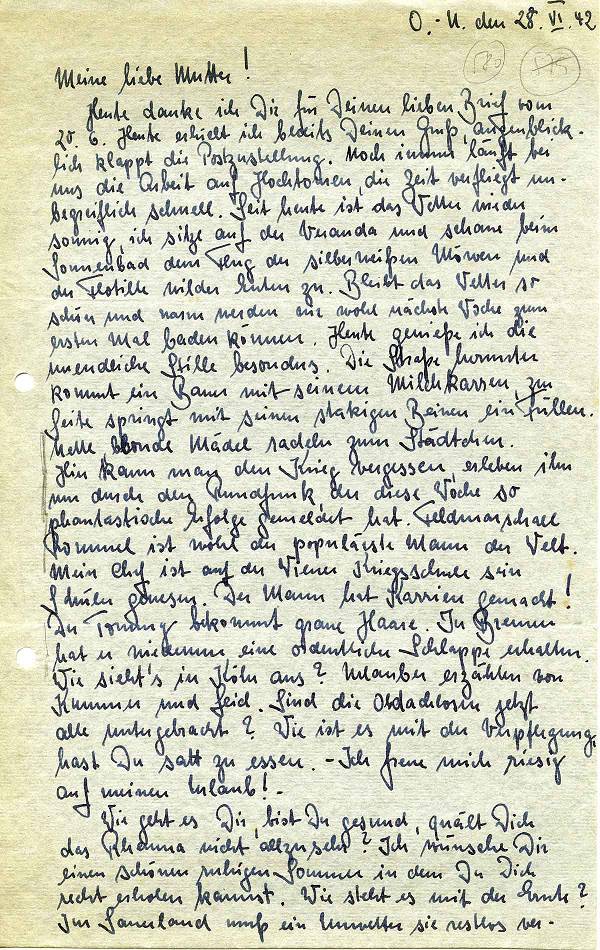 O.-U. den 28. VI. 42
580 575
Meine liebe Mutter!
Heute danke ich Dir für Deinen lieben Brief vom
20. 6. Heute erhielt ich bereits Deinen Gruß, augenblick-
lich klappt die Postzustellung. Noch immer läuft bei
uns die Arbeit auf Hochtouren, die Zeit verfliegt un-
begreiflich schnell. Seit heute ist das Wetter wieder
sonnig, ich sitze auf der Veranda und schaue beim
Sonnenbad dem Flug der silberweißen Möwen und
der Flotille wilder Enten zu. Bleibt das Wetter so
schön und warm werden wir wohl nächste Woche zum
ersten Mal baden können. Heute genieße ich die
unendliche Stille besonders. Die Straße herunter
kommt ein Bauer mit seinem Milchkarren, zur
Seite springt mit seinen stakigen Beinen ein Füllen.
Nette, blonde Mädel radeln zum Städtchen.
Hier kann man den Krieg vergessen, erleben ihn
nur durch den Rundfunk, der diese Woche so
phantastische Erfolge gemeldet hat. Feldmarschall
Rommel ist wohl der populärste Mann der Welt.
Mein Chef ist auf der Wiener Kriegsschule sein
Schüler gewesen. Der Mann hat Karriere gemacht!
Der Tommy bekommt graue Haare. In Bremen
hat er wiederum eine ordentliche Schlappe erhalten.
Wie sieht's in Köln aus? Urlauber erzählen von
Kummer und Leid. Sind die Obdachlosen jetzt
alle untergebracht? Wie ist es mit der Verpflegung,
hast Du satt zu essen. - Ich freue mich riesig
auf meinen Urlaub! -
Wie geht es Dir, bist Du gesund, quält Dich
das Rheuma nicht allzu sehr? Ich wünsche Dir
einen schönen ruhigen Sommer in dem Du Dich
recht erholen kannst. Wie steht es mit der Ernte?
Im Sauerland muß ein Unwetter sie restlos ver-